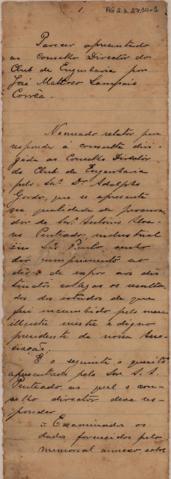 1.
Parecer apresentado
ao Conselho Director do
Club de Engenharia por
José Mattoso Sampaio
Corrêa.
Nomeado relator para
responder à consulta diri-
gida ao Conselho Director
do Club de Engenharia
pelo Snr. Dr. Adolpho
Gordo, que se apresenta
na qualidade de procura-
dor do Snr. Antonio Alva-
res Penteado, industrial
em São Paulo, venho
dar cumprimento ao
de expor aos dis-
tinctos collegas os resulta-
dos dos estudos de que
fui incumbido pelo meu
illustre mestre e digno
presidente da nossa Asso-
ciação.
É o seguinte o quesito
apresentado pelo Snr. A. A.
Penteado, ao qual o con-
selho director deve res-
ponder
Examinados os
dados fornecidos pelo
memorial annexo sobre